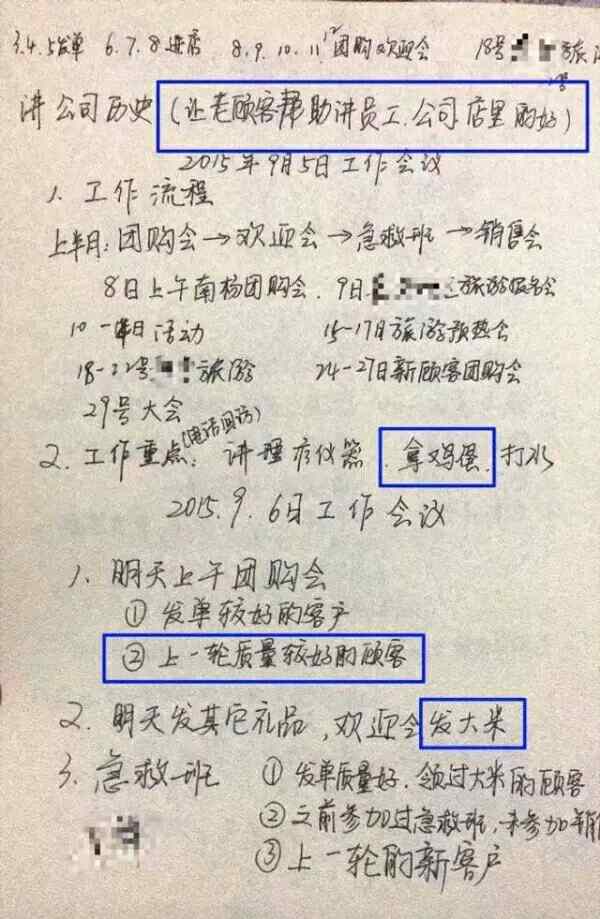 3.4.5发单 6.7.8进店 8.9.10.11.12团购欢迎会 18号 旅
讲公司历史(让老顾客帮助讲员工.公司店里的好)
2015年9月5日工作会议
1.工作流程
上半月:团购会→欢迎会→急救班→销售会
8日上午南杨团购会.9日 旅游报名会
10-日活动 15-17日旅游预热会
18-22号 旅游 24-27日新顾客团购会
29号大会
(电话回访)
2.工作重点:讲理疗仪器.拿鸡蛋.打水
2015.9.6日工作会议
1.明天上午团购会
①发单较好的客户
②上一轮质量较好的顾客
2.明天发其它礼品,欢迎会发大米
3.急救班 ①发单质量好.领过大米的顾客
②之前参加过急救班,未参加销
③上一轮的新客户